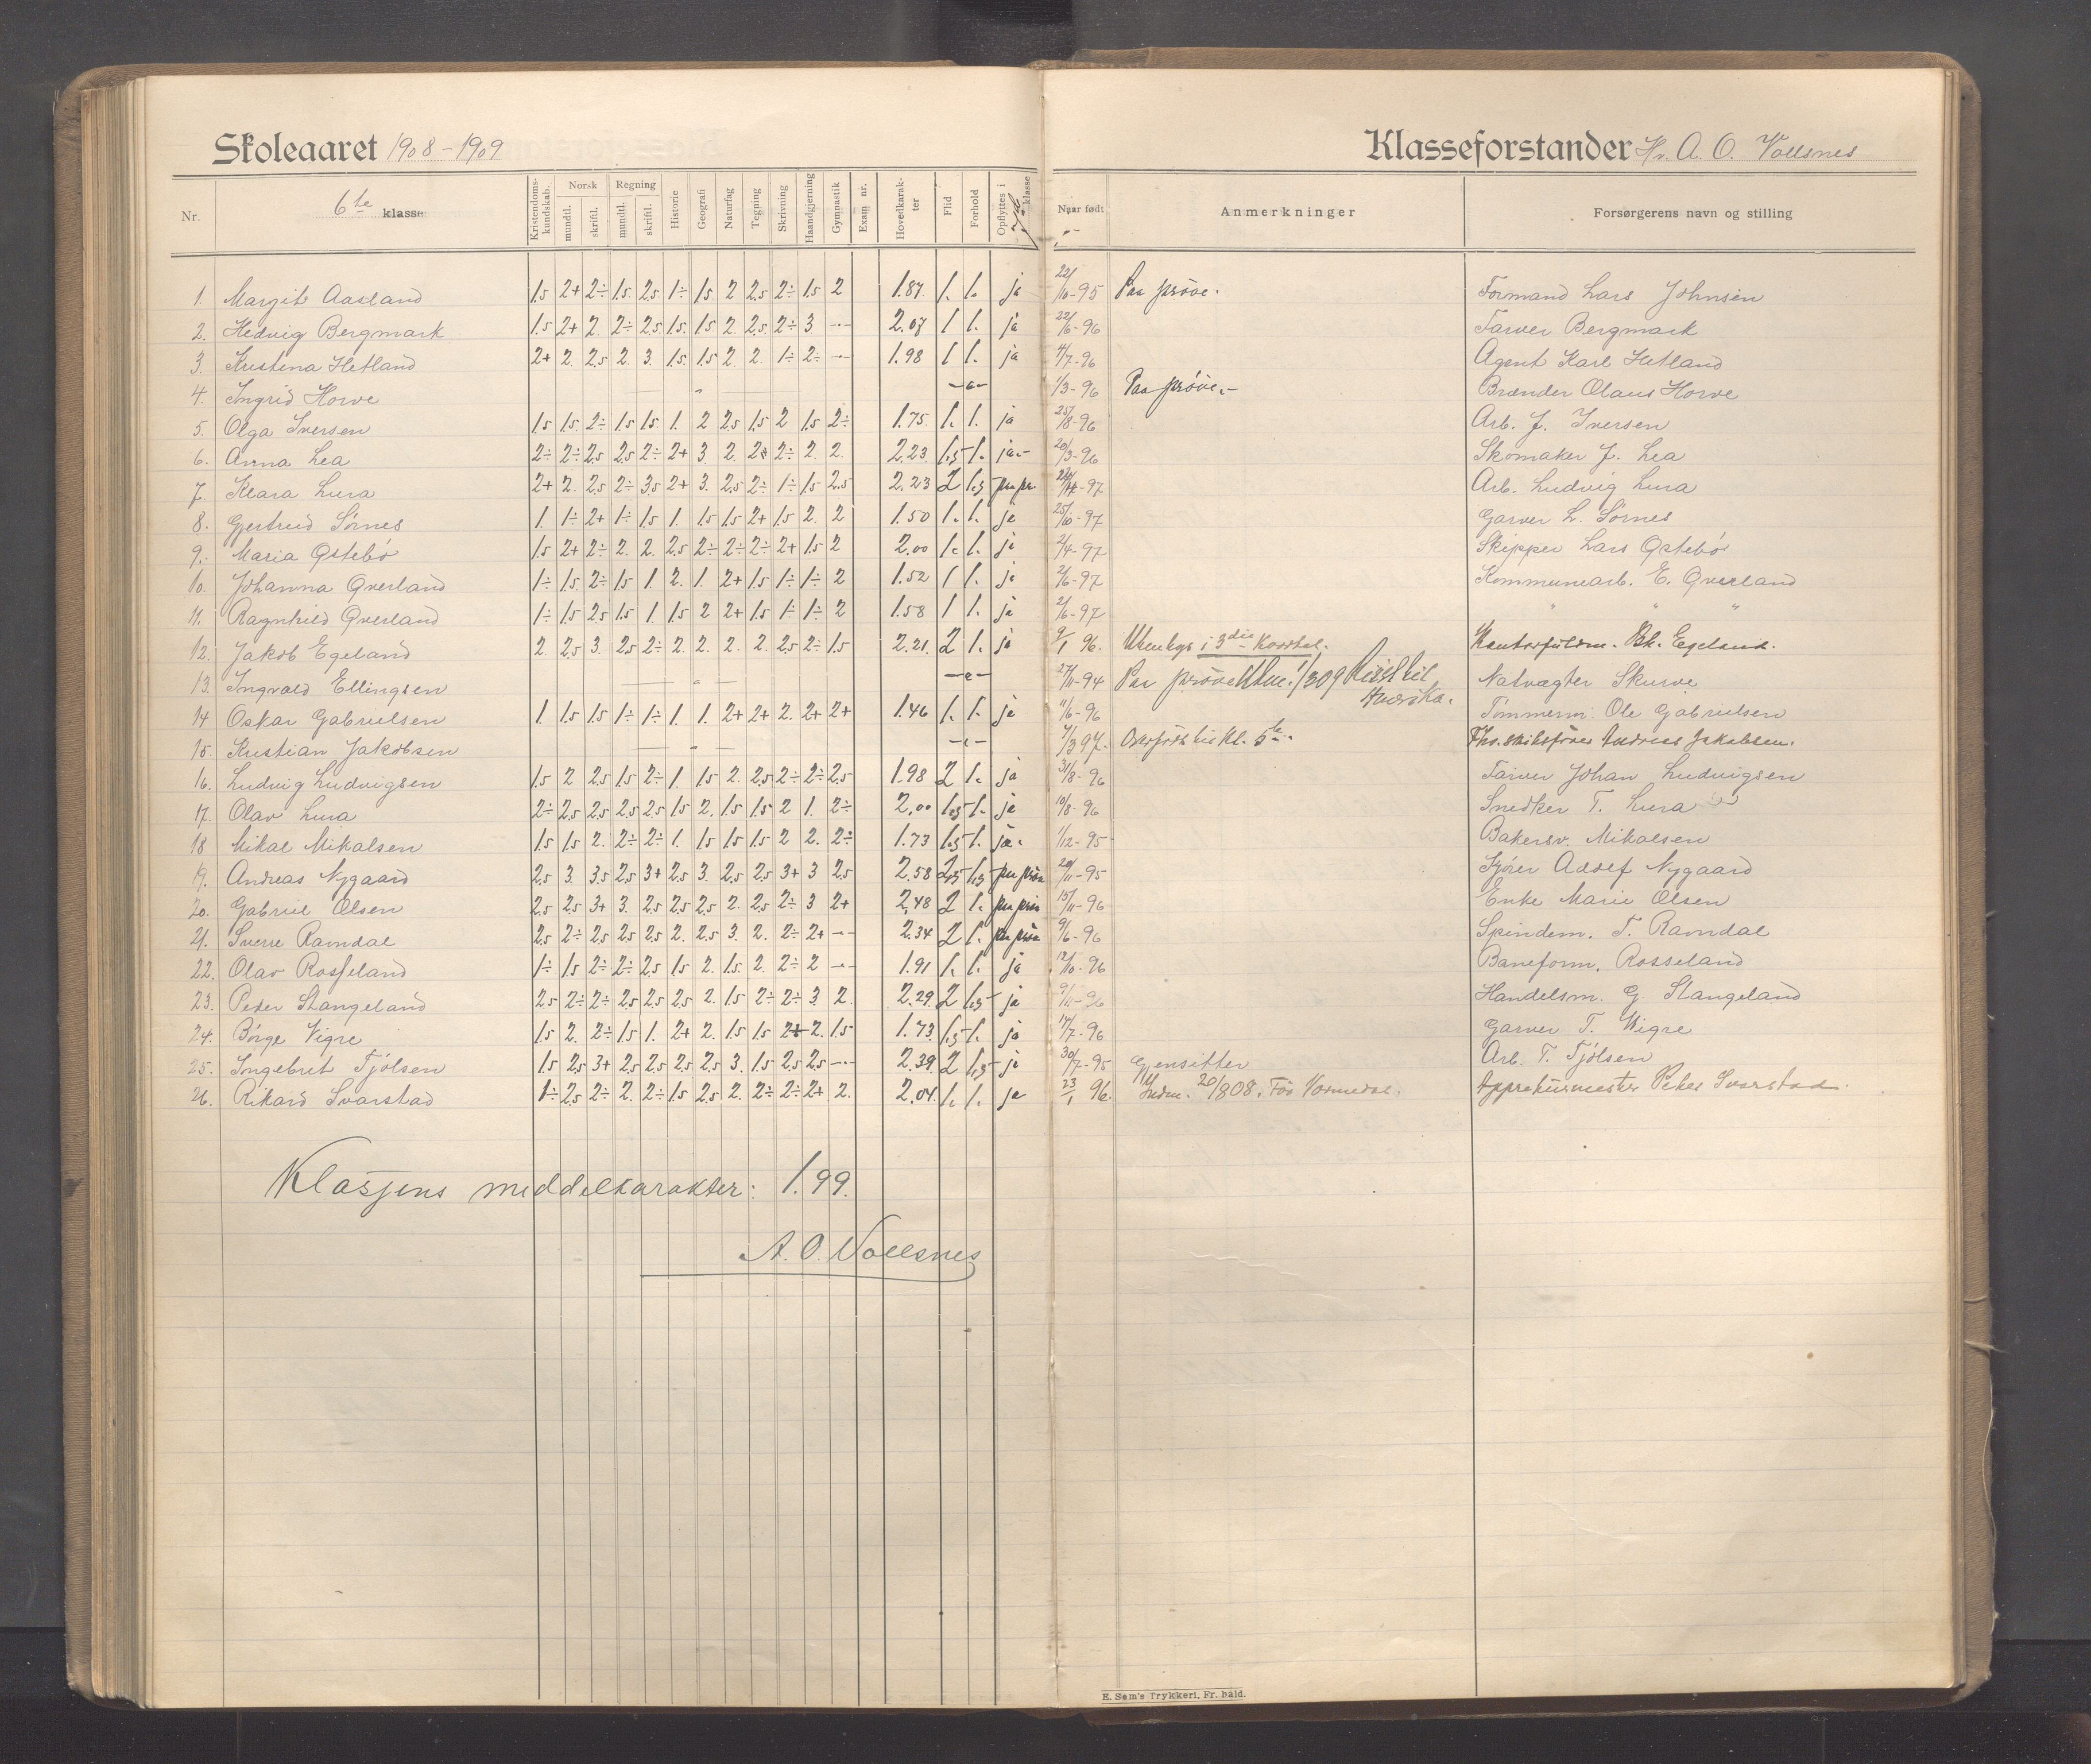 Skoleaaret 1908-1909
Klasseforstander Hr. A. O. Vollsnes
Nr. 6te klasse Kristendoms-kundskab. Norsk mundtl. skriftl. Regning mundtl. skriftl. Historie Geografi Naturfag Tegning Skrivning Haandgjerning Gymnastik Exam nr. Hovedkarakter Flid Forhold Opflyttes i 7de klasse Naar født Anmerkninger Forsørgerens navn og stilling
1. Margit Aasland 1.5 2+ 2÷ 1.5 2.5 1÷ 1.5 2 2.5 2÷ 1.5 2 1.87 1. 1. ja 22/10-95 Paa prøve. Formand Lars Johnsen
2. Hedvig Bergmark 1.5 2+ 2 2÷ 2.5 1.5 1.5 2 2.5 2÷ 3 -- 2.07 1 1. ja 22/6-96 Farver Bergmark
3. Kristena Hetland 2+ 2 2.5 2 3. 1.5 1.5 2 2 1÷ 2÷ -- 1.98 1 1. ja 4/7-96 Agent Karl Hetland
4. Ingrid Horve — " — -"- 1/3-96 Paa prøve.- Brænder Olaus Horve
5. Olga Iversen 1.5 1.5 2÷ 1.5 1.5 1. 2 2.5 1.5 2 1.5 2÷ 1.75 1. 1. ja 25/8-96 Arb. J. Iversen
6. Anna Lea 2÷ 2÷ 2.5 2.5 2÷ 2+ 3 2 2+ 2÷ 2 2 2.23 1.5 1. ja.- 20/3-96 Skomaker J. Lea
7. Klara Lura 2+ 2 2.5 2÷ 3.5 2+ 3. 2.5 2÷ 1÷ 1.5 2.5 2.23 2 1.5 paa pr -97 Arb. Ludvig Lura
8. Gjertrud Sörnes 1 1÷ 2+ 1÷ 1.5 1. 1.5 1.5 2+ 1.5 2. 2 1.50 1. 1. ja 25/10-97 Garver L. Sörnes
9. Maria Østebö 1.5 2+ 2÷ 2. 2. 2.5 2÷ 2÷ 2÷ 2+ 1.5 2 2.00 1. 1. ja 2/4-97 Skipper Lars Østebö
10. Johanna Qverland 1÷ 1.5 2÷ 1.5 1. 2. 1. 2+ 1.5 1÷ 1÷ 2 1.52 1 1. ja 2/6-97 Kommunearb. E. Qverland
11. Ragnhild Qverland 1÷ 1.5 2.5 1.5 1. 1.5 2 2+ 1.5 1÷ 1÷ 2 1.58 1 1. ja 2/6-97 " " "
12. Jakob Egeland 2. 2.5 3. 2.5 2÷ 2. 2. 2. 2. 2.5 2÷ 1.5 2.21. 2 1. ja 9/1 96. Utenbys i 3die kvartal. Kontorfuldm. Egeland.
13. Ingvald Ellingsen — " — -"- 27/11-94 Paa prøve Utm. 1/309 Reist til Amerika. Natvægter Skurve
14 Oskar Gabrielsen 1. 1.5 1.5 1÷ 1÷ 1. 1. 2+ 2+ 2. 2+ 2+ 1.46 1. 1. ja 11/6-96 Tömmerm. Ole Gabrielsen
15. Kristian Jakobsen — " — -"- 7/397. Overført til kl. 5 Andreas Jakobsen.
16. Ludvig Ludvigsen 1.5 2 2.5 1.5 2÷ 1. 1.5 2. 2.5 2÷ 2÷ 2.5 1.98 2 1. ja 31/8-96 Farver Johan Ludvigsen
17. Olav Lura 2÷ 2.5 2.5 2.5 2.5 1.5 2. 1.5 1.5 2 1. 2÷ 2.00 1.5 1. ja 10/8-96 Snedker T. Lura
18 Mikal Mikalsen 1.5 1.5 2. 2÷ 2÷ 1. 1.5 1.5 1.5 2 2. 2÷ 1.73 1.5 1. ja. 1/12-95 Bakersv. Mikalsen
19. Andreas Nygaard 2.5 3. 3.5 2.5 3+ 2.5 3. 2.5 2.5 3+ 3 2.5 2.58 2.5 1.5 paa prøve 20/11-95 Kjører Adolf Nygaard
20. Gabriel Olsen 2.5 2.5 3+ 3. 2.5 2.5 2.5 2. 2.5 2÷ 3 2+ 2.48 2 1. paa prøv 15/11-96 Enke Marie Olsen
21. Sverre Ramdal 2.5 2÷ 2.5 2.5 2.5 2. 2.5 3. 2. 2÷ 2+ -- 2.34 2 1. paa prøve 9/6-96 Spindem. T. Ramdal
22. Olav Rosseland 1÷ 1.5 2÷ 2÷ 2.5 1.5 2. 1.5. 2. 2÷ 2 -- 1.91 1. 1. ja 12/10-96 Baneform. Rosseland
23. Peder Stangeland 2.5 2÷ 2÷ 2.5 2.5 2.5 2. 1.5 2÷ 2÷ 3 2. 2.29 2 1.5 ja 9/11-96 Handelsm. G. Stangeland
24. Börge Vigre 1.5 2. 2÷ 1.5 1. 2+ 2. 1.5 1.5 2+ 2. 1.5 1.73 1.5 1. ja 14/7-96 Garver T. Vigre
25. Ingebret Tjölsen 1.5 2.5 3+ 2.5 2.5 2.5 2.5 3. 1.5 2.5 2.5 -- 2.39 2 1.5 ja 30/7-95 Gjensitter Arb. T. Tjölsen
26. Rikard Svarstad 1÷ 2.5 2÷ 2. 2÷ 1.5 2.5 2. 2÷ 2÷ 2+ 2. 2.04. 1. 1. ja 23/1 96. Indm. 20/808. Før Vormedal. Appreturmester Peder Svarstad.
Klassens middelkarakter: 1.99.
A. O. Vollsnes
E. Sem's Trykkeri, Fr. hald.